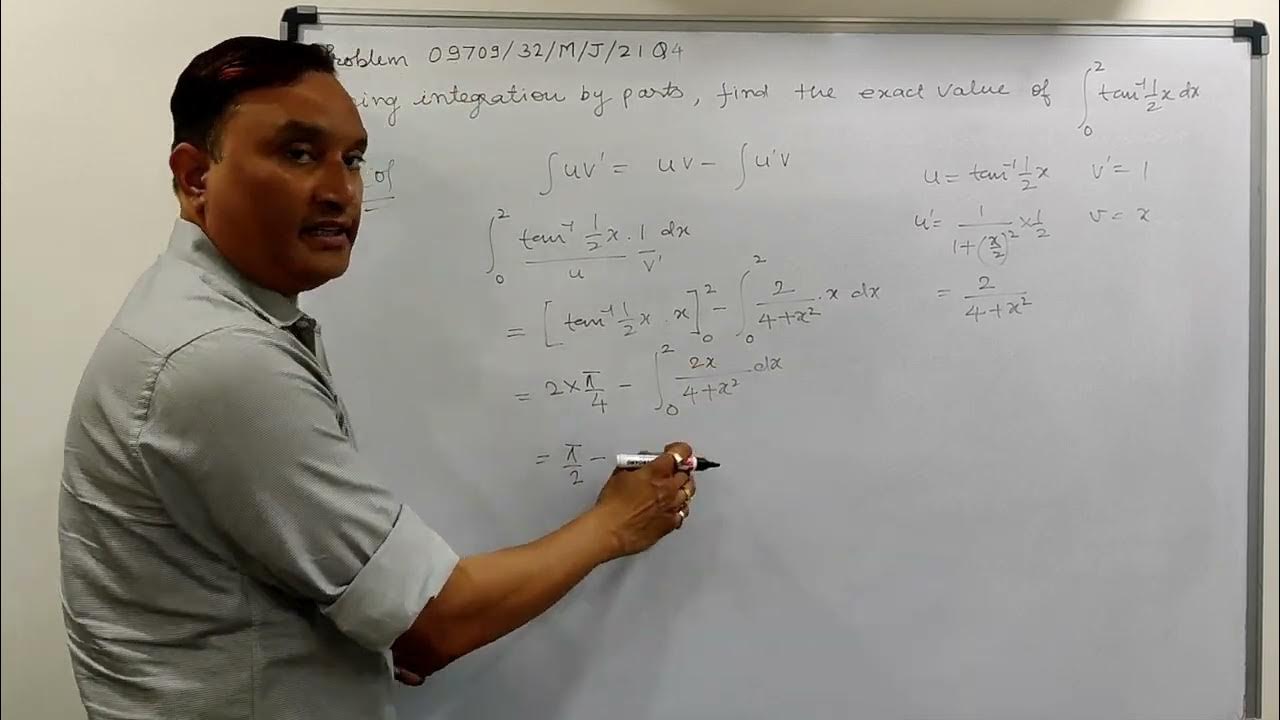 roblem 09709/32/M/J/21 Q4
ing integration by parts, find the exact value of ∫₀² tan⁻¹ ½x dx
of
∫uv' = uv - ∫u'v
u = tan⁻¹ ½x v' = 1
u' = 1/(1+(x/2)²) × ½ v = x
= 2/(4+x²)
∫₀² tan⁻¹ ½x . 1 dx
u v'
= [tan⁻¹ ½x . x]₀² - ∫₀² 2/(4+x²) . x dx
= 2×π/4 - ∫₀² 2x/(4+x²) dx
= π/2 -